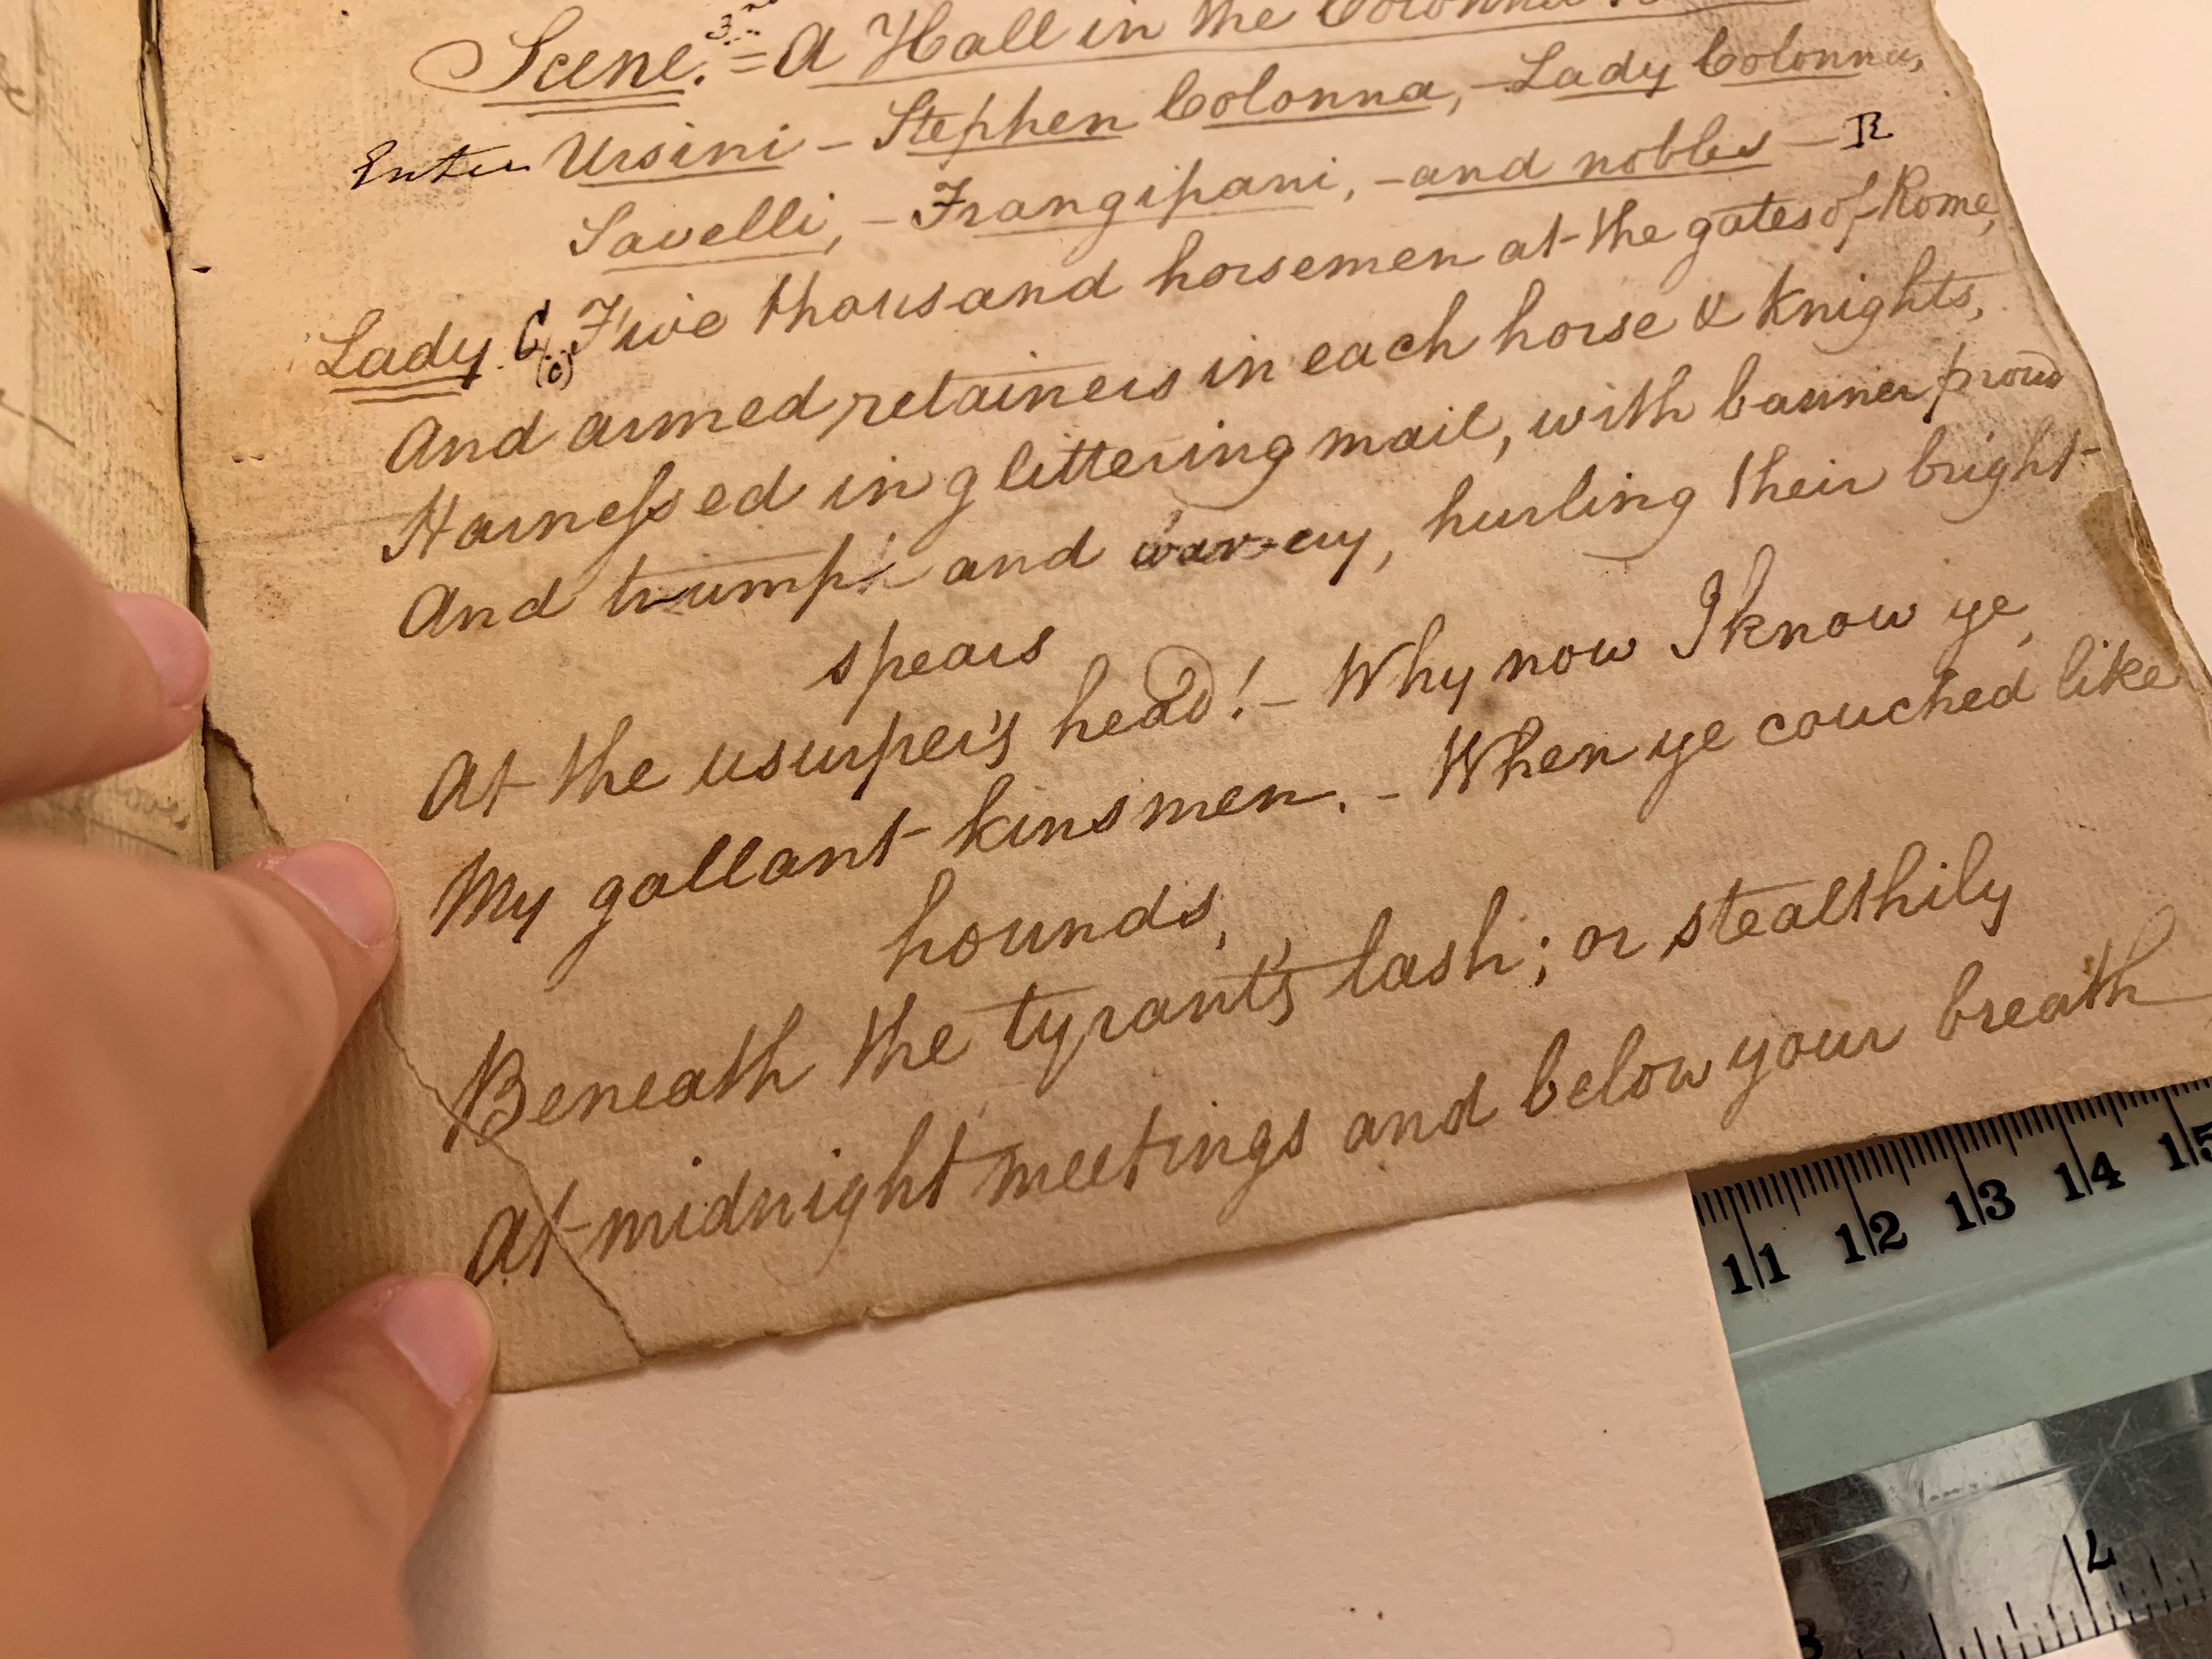 Scene. 3rd = A Hall in the Colonna
Enter Ursini – Stephen Colonna, – Lady Colonna,
Savelli, – Frangipani, – and nobles – R
Lady. C (c) Five thousand horsemen at the gates of Rome,
And armed retainers in each horse & knights,
Harnessed in glittering mail, with banner proud
And trump and war-cry, hurling their bright
spears
At the usurper's head! – Why now I know ye,
My gallant kinsmen. – When ye couched like
hounds,
Beneath the tyrant's lash; or stealthily
At midnight meetings and below your breath
11 12 13 14 15
7
8